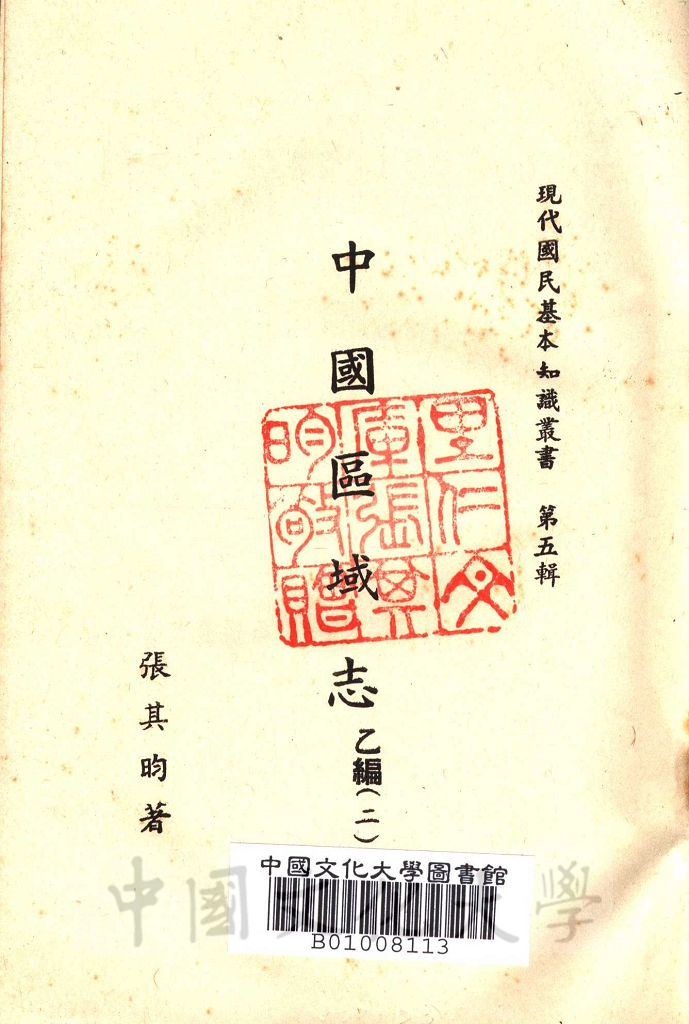 現代國民基本知識叢書 第五輯
中國區域志 乙編(二)
里仁文
庫張其
昀敬贈
張其昀著
中國文化大學圖書館
B01008113
中國文化大學